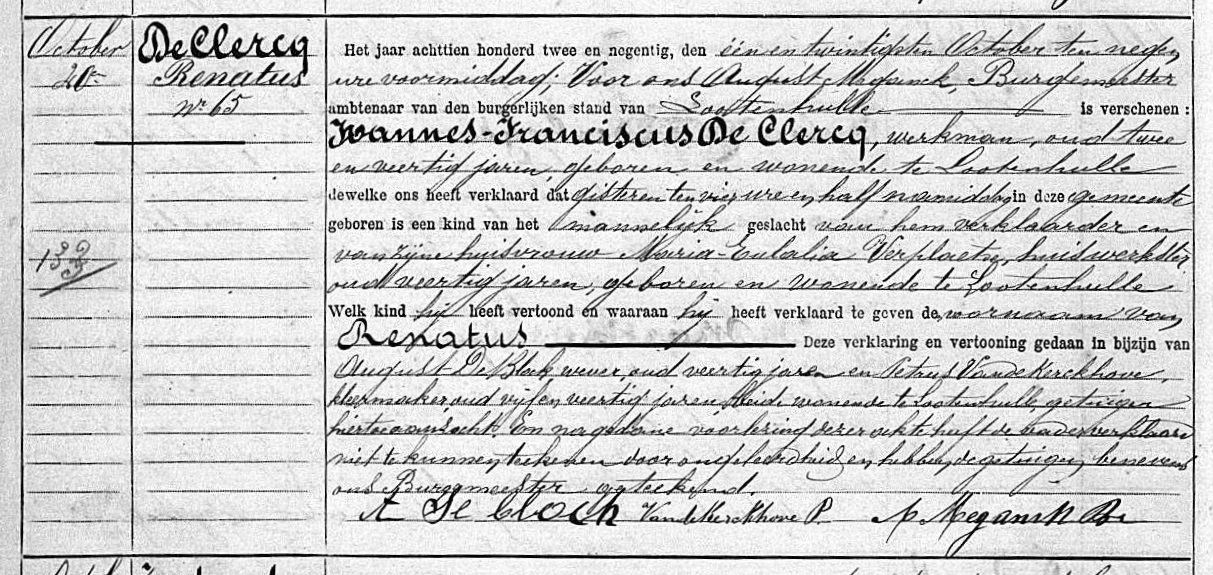 October
20e
De Clercq
Renatus
No 65
Het jaar achttien honderd twee en negentig, den één en twintigsten October ten negen
ure voormiddag; Voor ons August Meganck, Burgemeester
ambtenaar van den burgerlijken stand van Lootenhulle is verschenen :
Joannes-Franciscus De Clercq, werkman, oud twee
en veertig jaren, geboren en wonende te Lootenhulle
dewelke ons heeft verklaard dat gisteren ten vier ure en half namiddag in deze gemeente
geboren is een kind van het mannelijk geslacht van hem verklaarder en
van zijne huisvrouw Maria-Eulalia Verplaetse, huiswerkster
oud veertig jaren, geboren en wonende te Lootenhulle
Welk kind hij heeft vertoond en waaraan hij heeft verklaard te geven de voornaam van
Renatus Deze verklaring en vertooning gedaan in bijzijn van
August De Block, wever, oud veertig jaren en Petrus Vande Kerckhove,
kleermaker oud vijf en veertig jaren beide wonende te Lootenhulle, getuigen
hiertoe aanzocht. En na gedane voorlezing dezer ackte heeft de vader verklaard
niet te kunnen teekenen door ongeleerdheid en hebben de getuigen benevens
ons Burgemeester geteekend.
A De Block Vandekerckhove P. A Meganck Br